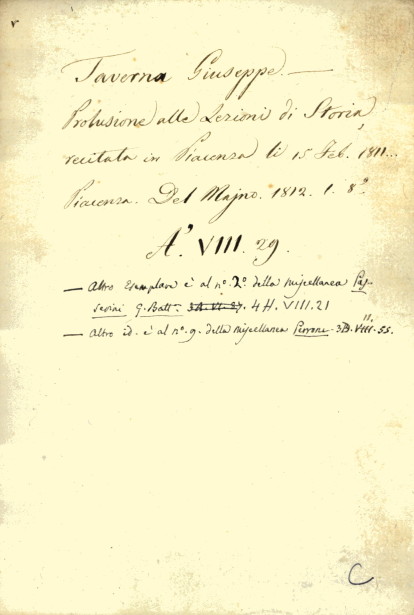 Taverna Giuseppe. —
Prolusione alle Lezioni di Storia,
recitata in Piacenza li 15 Feb. 1811..
Piacenza. Del Majno. 1812. 1. 8°.
A' VIII. 29.
— Altro esemplare è al n° 2° della miscellanea Pas-
serini G. Batt. 3A.VI.27. 4H. VIII. 21
— Altro id. è al n°. 9. della miscellanea Perrone. 3D. VIII. 55.
C